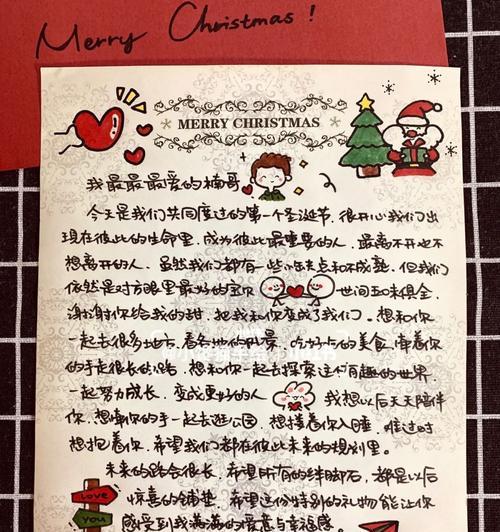 Merry Christmas!
MERRY CHRISTMAS
我最最最爱的楠哥
今天是我们共同度过的第一个圣诞节,很开心我们出
现在彼此的生命里,成为彼此最重要的人,最离不开也不
想离开的人,虽然我们都有一些小缺点和不成熟,但我们
依然是对方眼里最好的宝贝 世间五味俱全,
谢谢你给我的甜,把我和你变成了我们。想和你
一起去很多地方,看各地的风景,吃好多的美食,牵着你
的手走很长的路,想和你一起去探索这个有趣的世界,
一起努力成长,变成更好的人 我想以后天天陪伴
你,想牵你的手一起去逛公园,想搂着你入睡,难过时
想抱着你,希望我们都在彼此未来的规划里。
未来的路会很长,希望所有的绊脚石,都是以后
惊喜的铺垫,希望这份特别的礼物能让你
感受到我满满的爱意与幸福感
Love
You